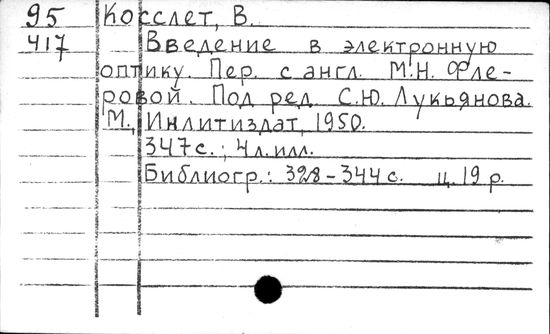 95 Косслет, В.
417 Введение в электронную
оптику. Пер. с англ. М.Н. Фле-
ровой. Под ред. С.Ю. Лукьянова.
М., Инлитиздат, 1950.
347 с.; 4 л. илл.
Библиогр.: 328-344 с. ц. 19 р.